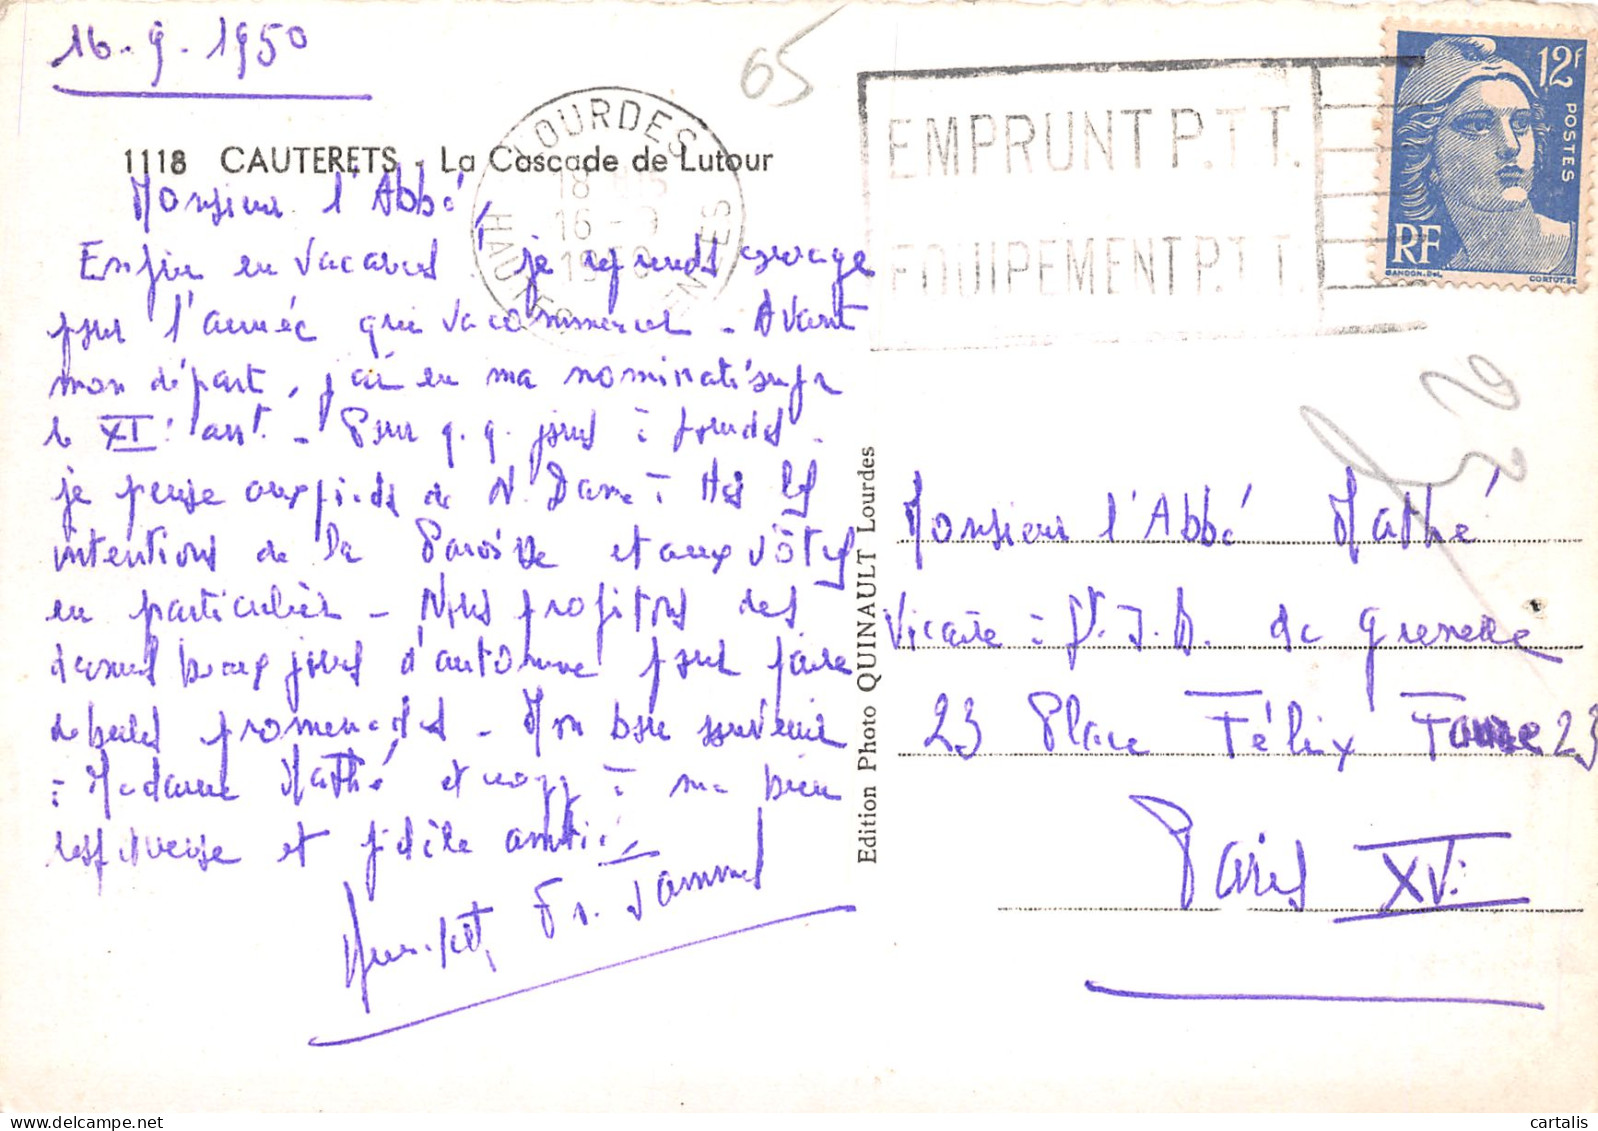 16-9-1950
65
1118 CAUTERETS - La Cascade de Lutour
LOURDES
18H15
16-9
1950
HAUTES PYRENEES
EMPRUNT P.T.T.
EQUIPEMENT P.T.T.
12F
POSTES
RF
GANDON.DEL.
CORTOT.SC
Monsieur l'Abbé,
Enfin en vacances ! je reprends courage
pour l'année qui va commencer - Avant
mon départ, j'ai eu ma nomination pr
le XIe arrt. - Pour q.q. jours à Lourdes.
je pense aux pieds de N. Dame à ttes les
intentions de la Paroisse et aux vôtres
en particulier - Nous profitons des
derniers beaux jours d'automne pour faire
de belles promenades - Mon bon souvenir
à Madame Mathé et croyez à ma bien
respectueuse et fidèle amitié,
Fr.
Edition Photo QUINAULT Lourdes
Monsieur l'Abbé Mathé
Vicaire à St. J.B. de Grenelle
23 Place Félix Faure 23
Paris XV.
cartalis